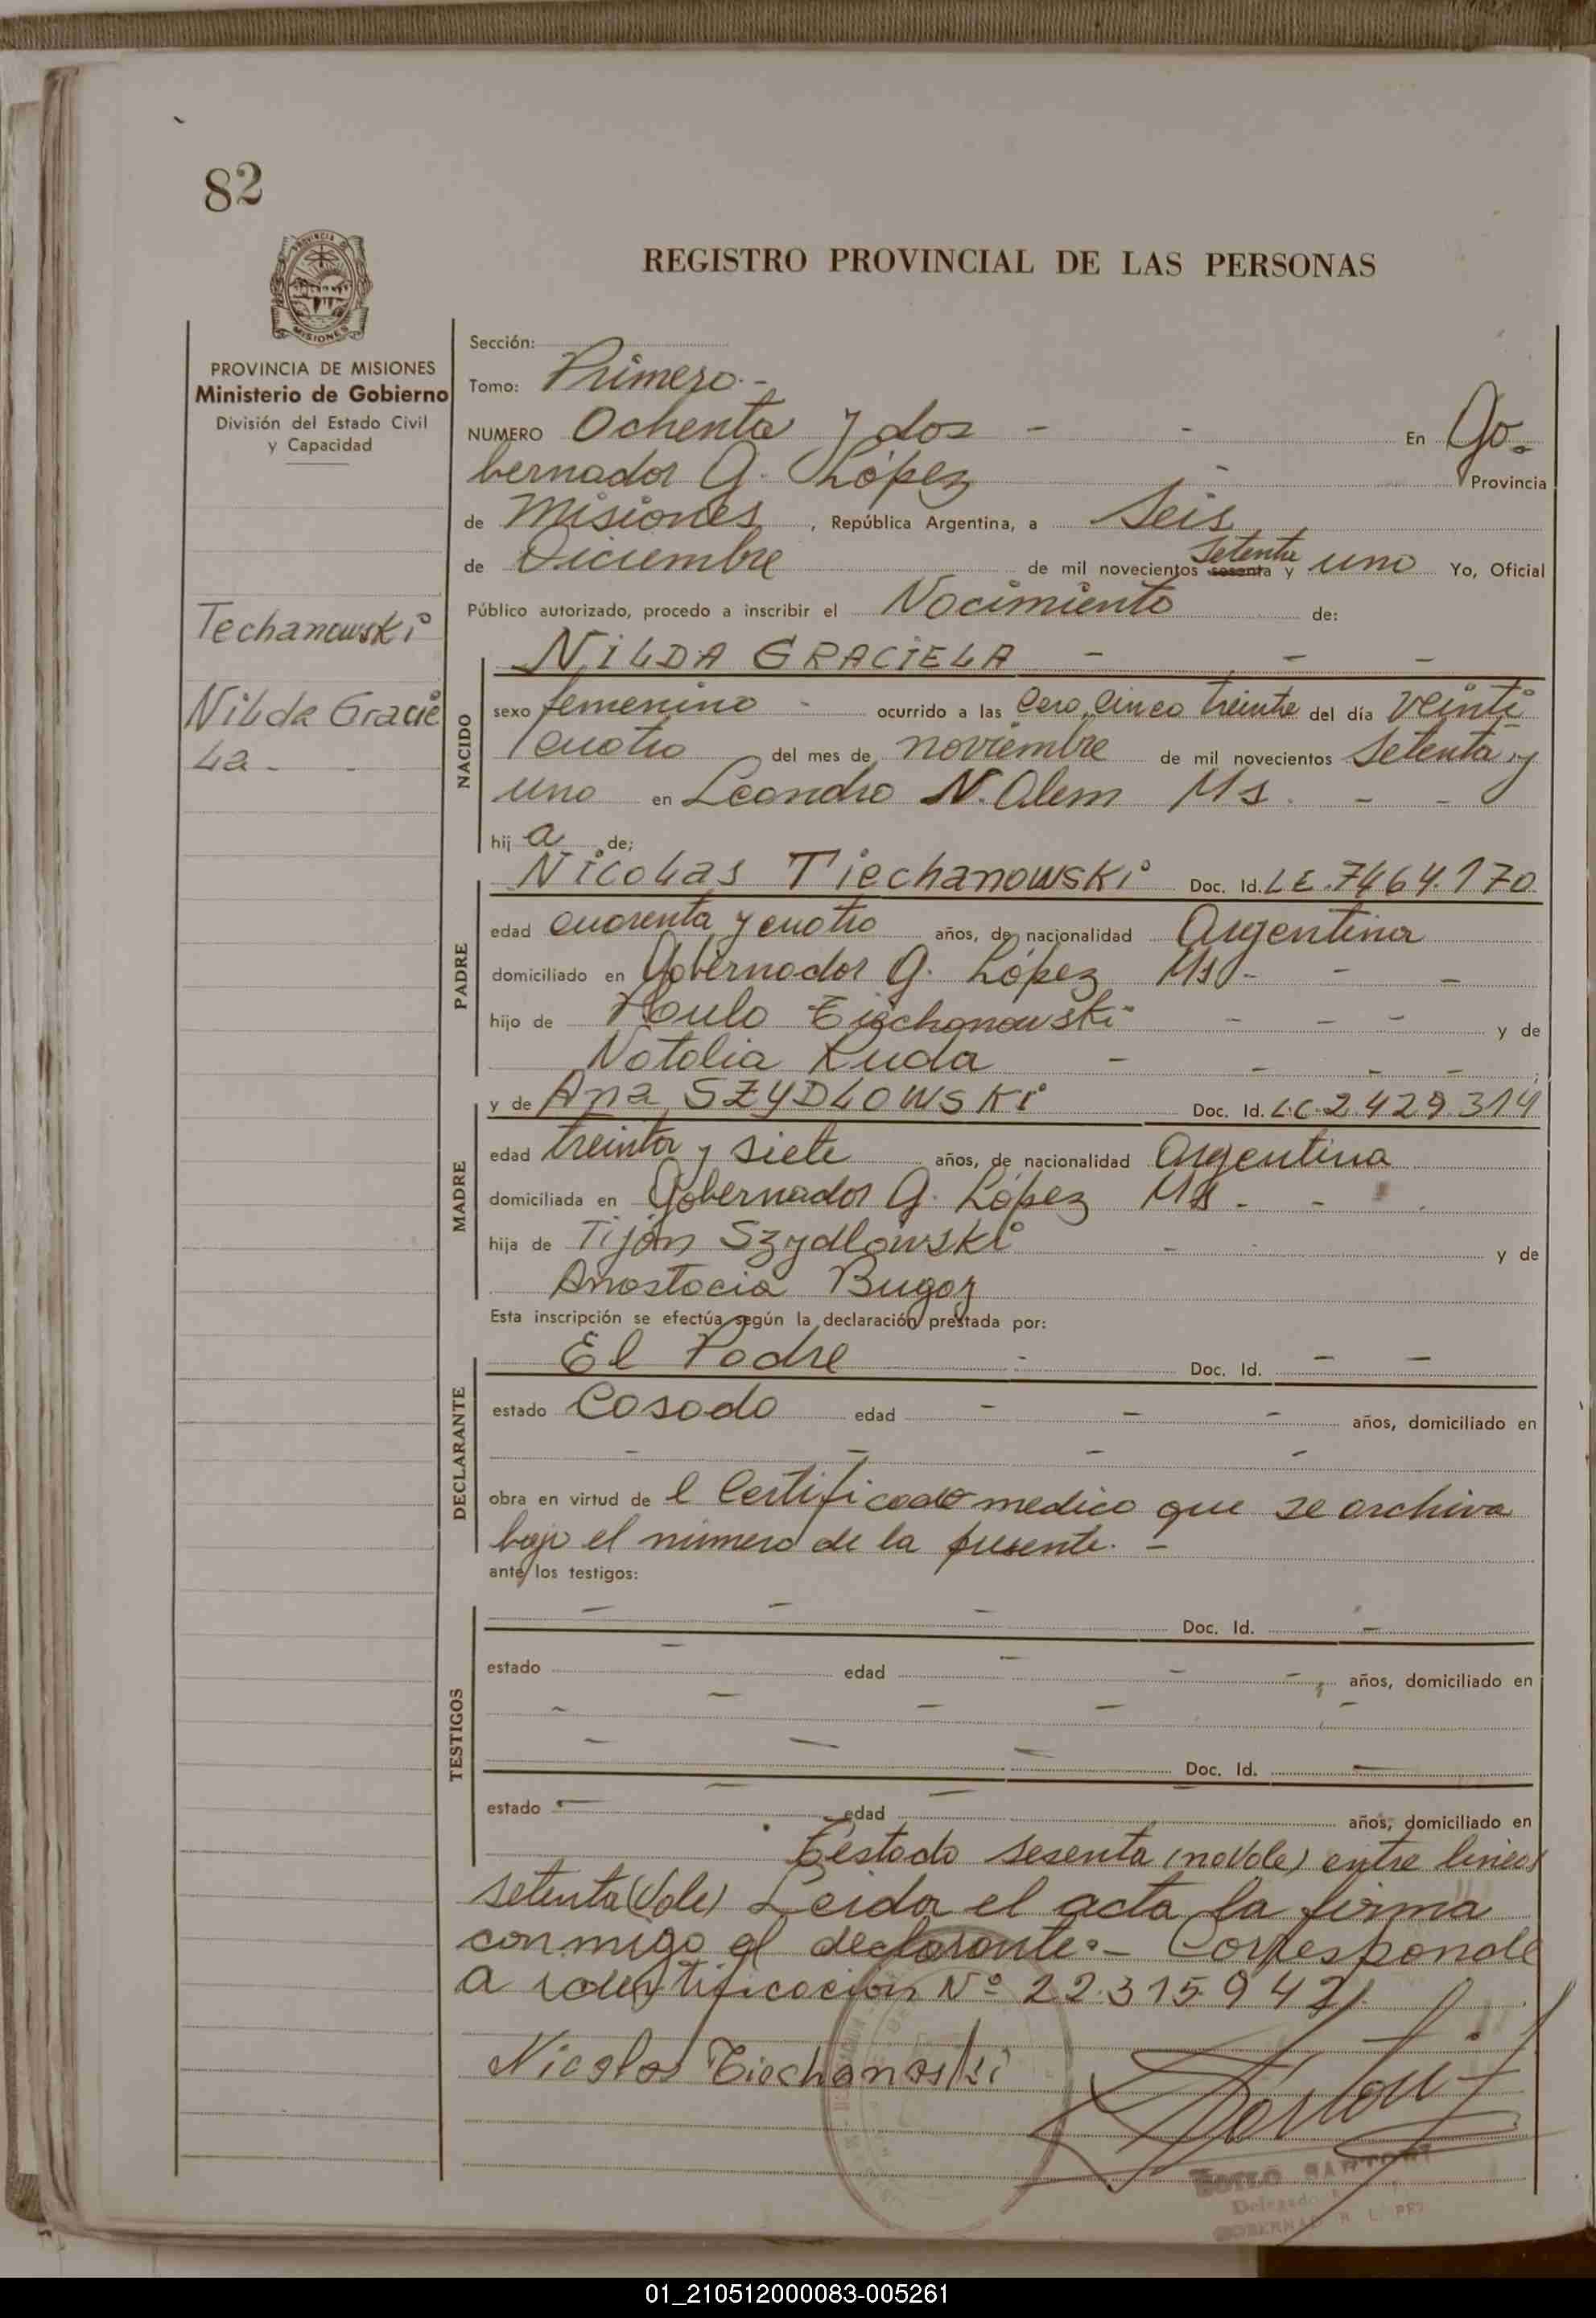 82
REGISTRO PROVINCIAL DE LAS PERSONAS
MISIONES
PROVINCIA DE MISIONES
Ministerio de Gobierno
División del Estado Civil
y Capacidad
Techanowski
Nilda Gracie
La - -
Sección:
Tomo: Primero.-
NUMERO Ochenta y dos - - En Go-
bernador G. López - Provincia
de Misiones, República Argentina, a Seis
de Diciembre de mil novecientos sesenta setenta y uno Yo, Oficial
Público autorizado, procedo a inscribir el Nacimiento de:
NACIDO
NILDA GRACIELA - - -
sexo femenino - ocurrido a las cero, cinco treinta del día veinti
cuatro del mes de noviembre de mil novecientos setenta y
uno en Leandro N. Alem Ms. - -
hij a de;
PADRE
Nicolas Tiechanowski Doc. Id. LE.7464.170
edad cuarenta y cuatro años, de nacionalidad Argentina
domiciliado en Gobernador G. López Ms - - -
hijo de Paulo Tiechanowski - - - y de
Natalia Ruda - - - - ;
MADRE
y de Ana SZYDLOWSKI Doc. Id. L.C.2.429.314
edad treinta y siete años, de nacionalidad Argentina
domiciliada en Gobernador G. López Ms - -
hija de Tijón Szydlowski - y de
Anastacia Bugoz
Esta inscripción se efectúa según la declaración prestada por:
DECLARANTE
El Padre - Doc. Id. - -
estado Casado edad - - - años, domiciliado en
- - - -
obra en virtud de l Certificado medico que se archiva
bajo el número de la presente. -
ante los testigos:
TESTIGOS
- - - Doc. Id. -
estado - edad - - - años, domiciliado en
- - - - -
- - - Doc. Id. -
estado - - edad - años, domiciliado en
Testado sesenta (no Vale) entre lineas
setenta (Vale) Leida el acta la firma
conmigo el declarante.- Corresponde
a identificación Nº 22.315.942/.
Nicolas Tiechanoski
SARTORI
Delegado
GOBERNAD R LOPEZ
01_210512000083-005261